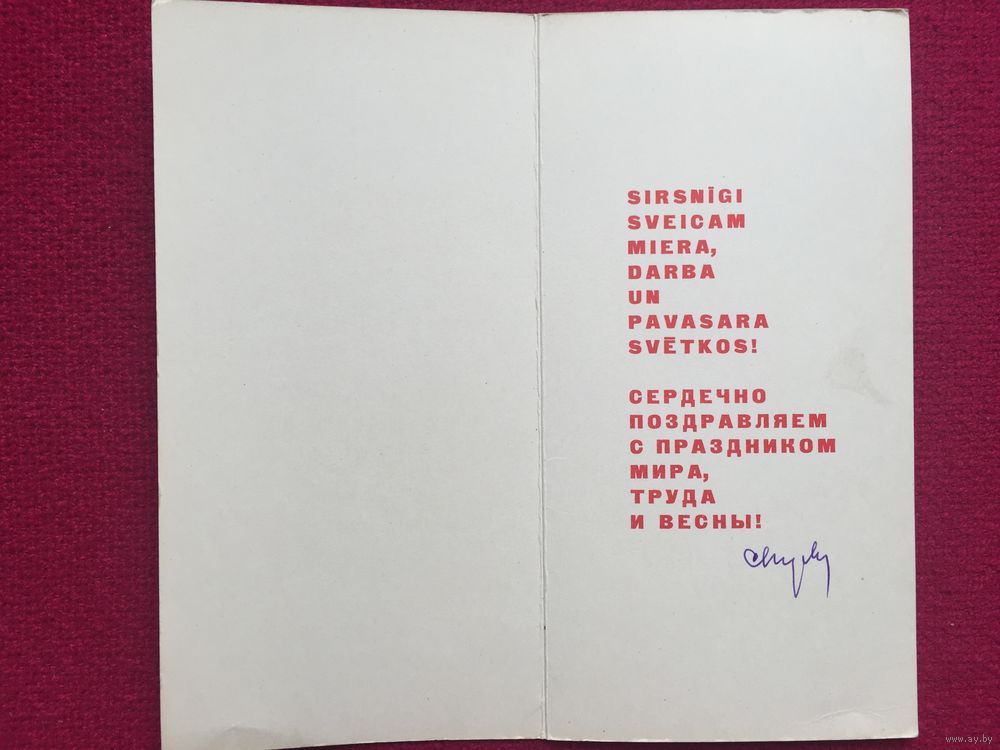 SIRSNĪGI
SVEICAM
MIERA,
DARBA
UN
PAVASARA
SVĒTKOS!
СЕРДЕЧНО
ПОЗДРАВЛЯЕМ
С ПРАЗДНИКОМ
МИРА,
ТРУДА
И ВЕСНЫ!
www.ay.by